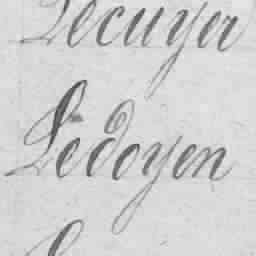 Lecuyer
Ledoyen